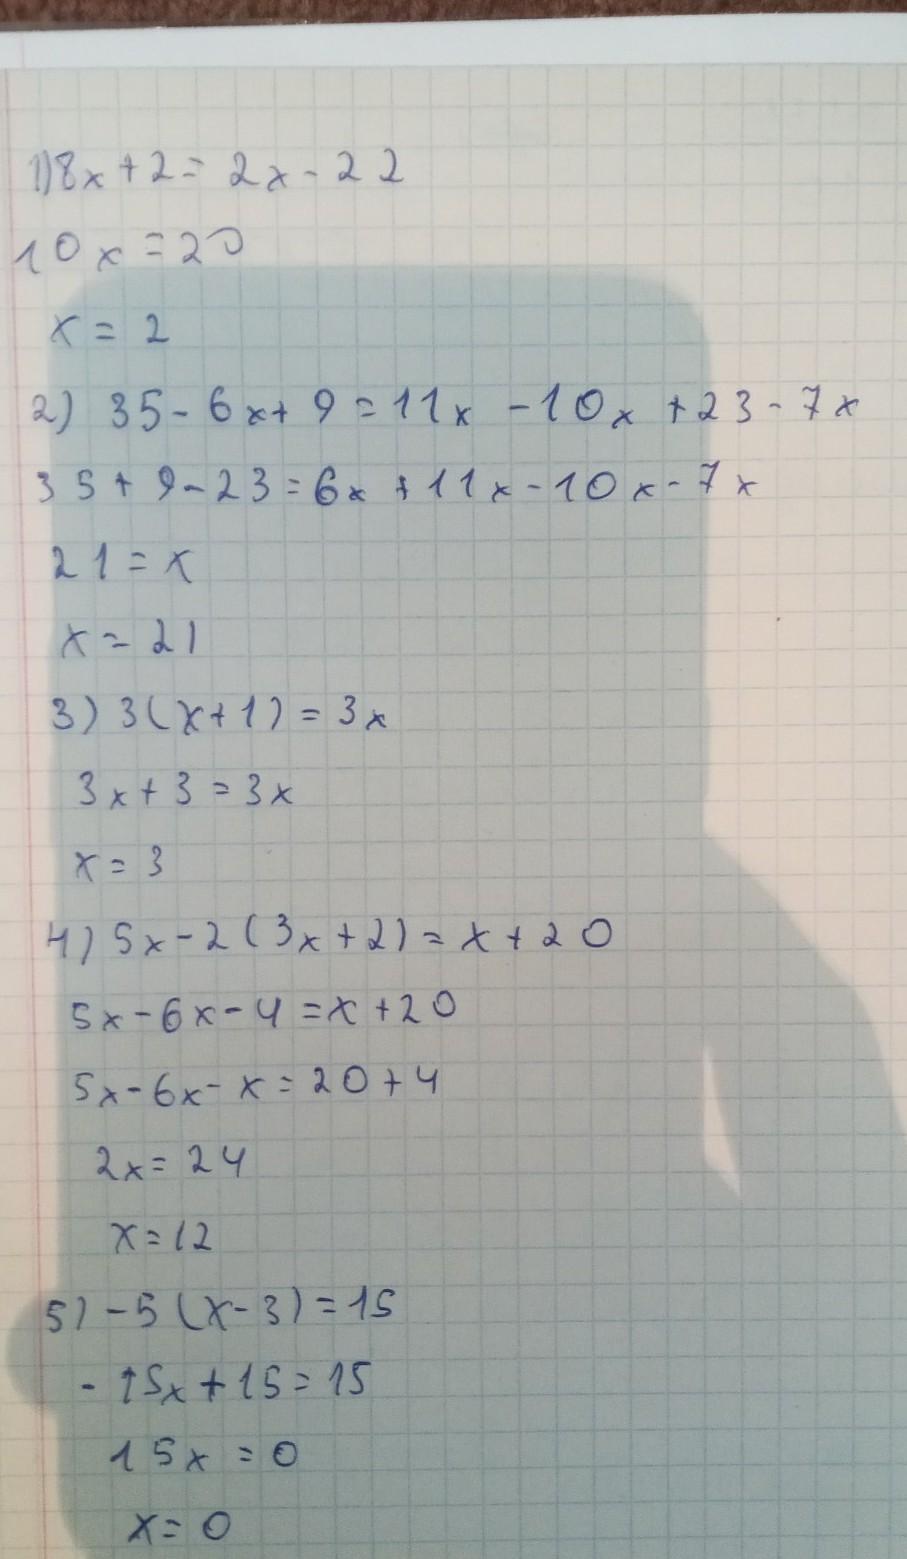 1) 8x + 2 = 2x - 22
10x = 20
x = 2
2) 35 - 6x + 9 = 11x - 10x + 23 - 7x
35 + 9 - 23 = 6x + 11x - 10x - 7x
21 = x
x = 21
3) 3(x+1) = 3x
3x + 3 = 3x
x = 3
4) 5x - 2(3x + 2) = x + 20
5x - 6x - 4 = x + 20
5x - 6x - x = 20 + 4
2x = 24
x = 12
5) -5(x - 3) = 15
-15x + 15 = 15
15x = 0
x = 0